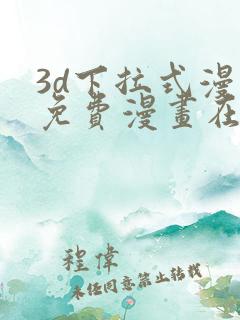 3d下拉式漫
免費漫畫在
程偉
未经同意禁止转载